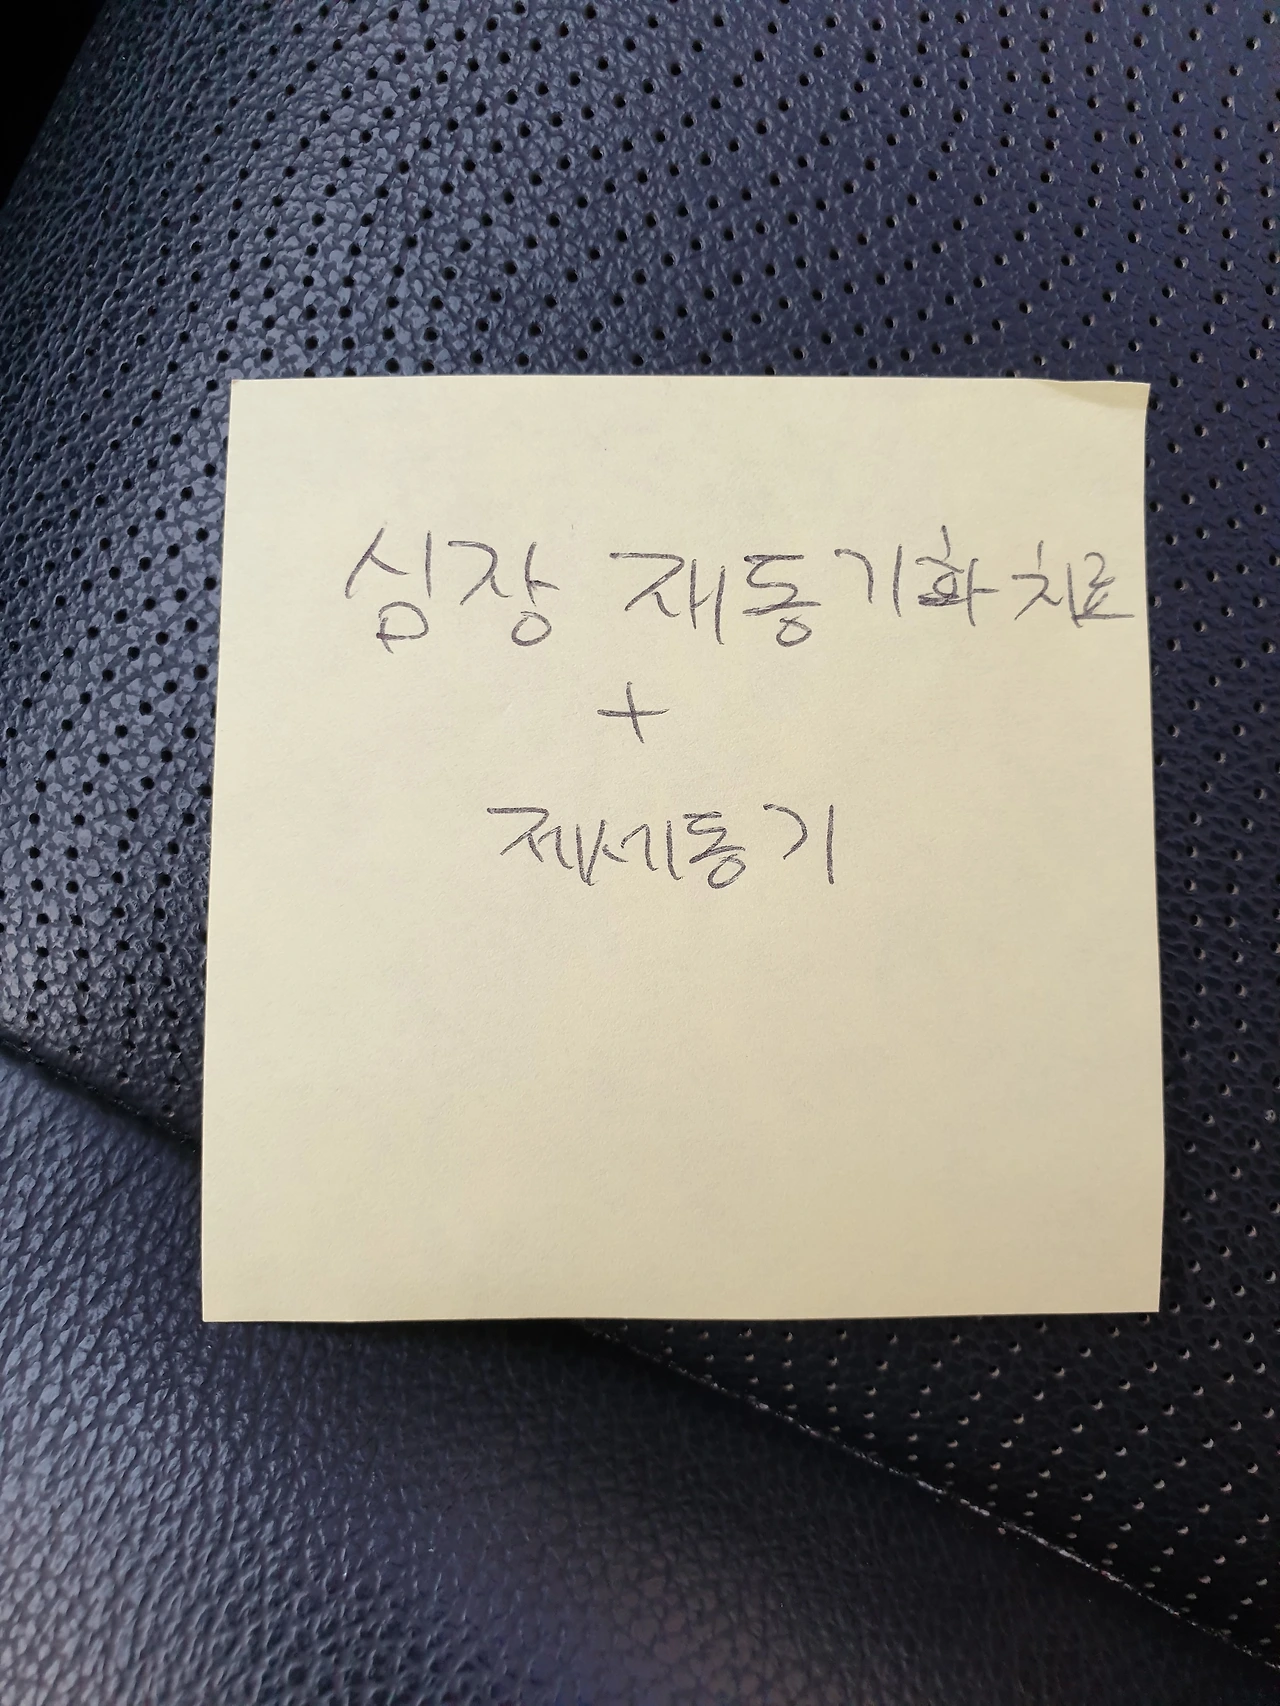 심장 재동기화 치료
+
제세동기